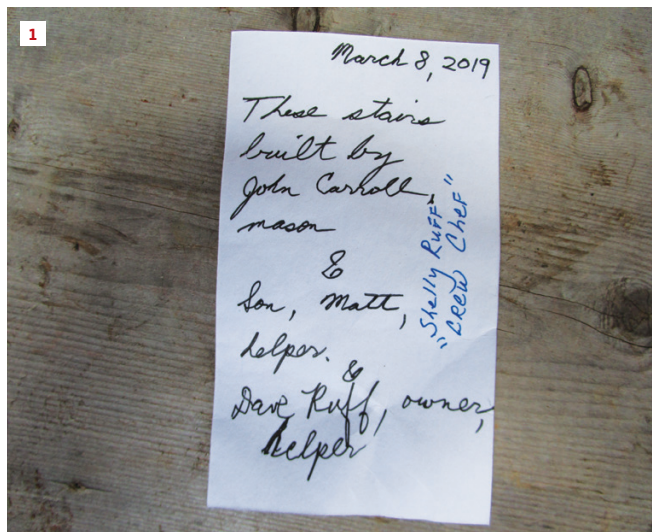 1
March 8, 2019
These stairs
built by
John Carroll,
mason
&
Son, Matt,
helper.
&
Dave Ruff, owner,
helper
Shelly Ruff
"Crew Chef"